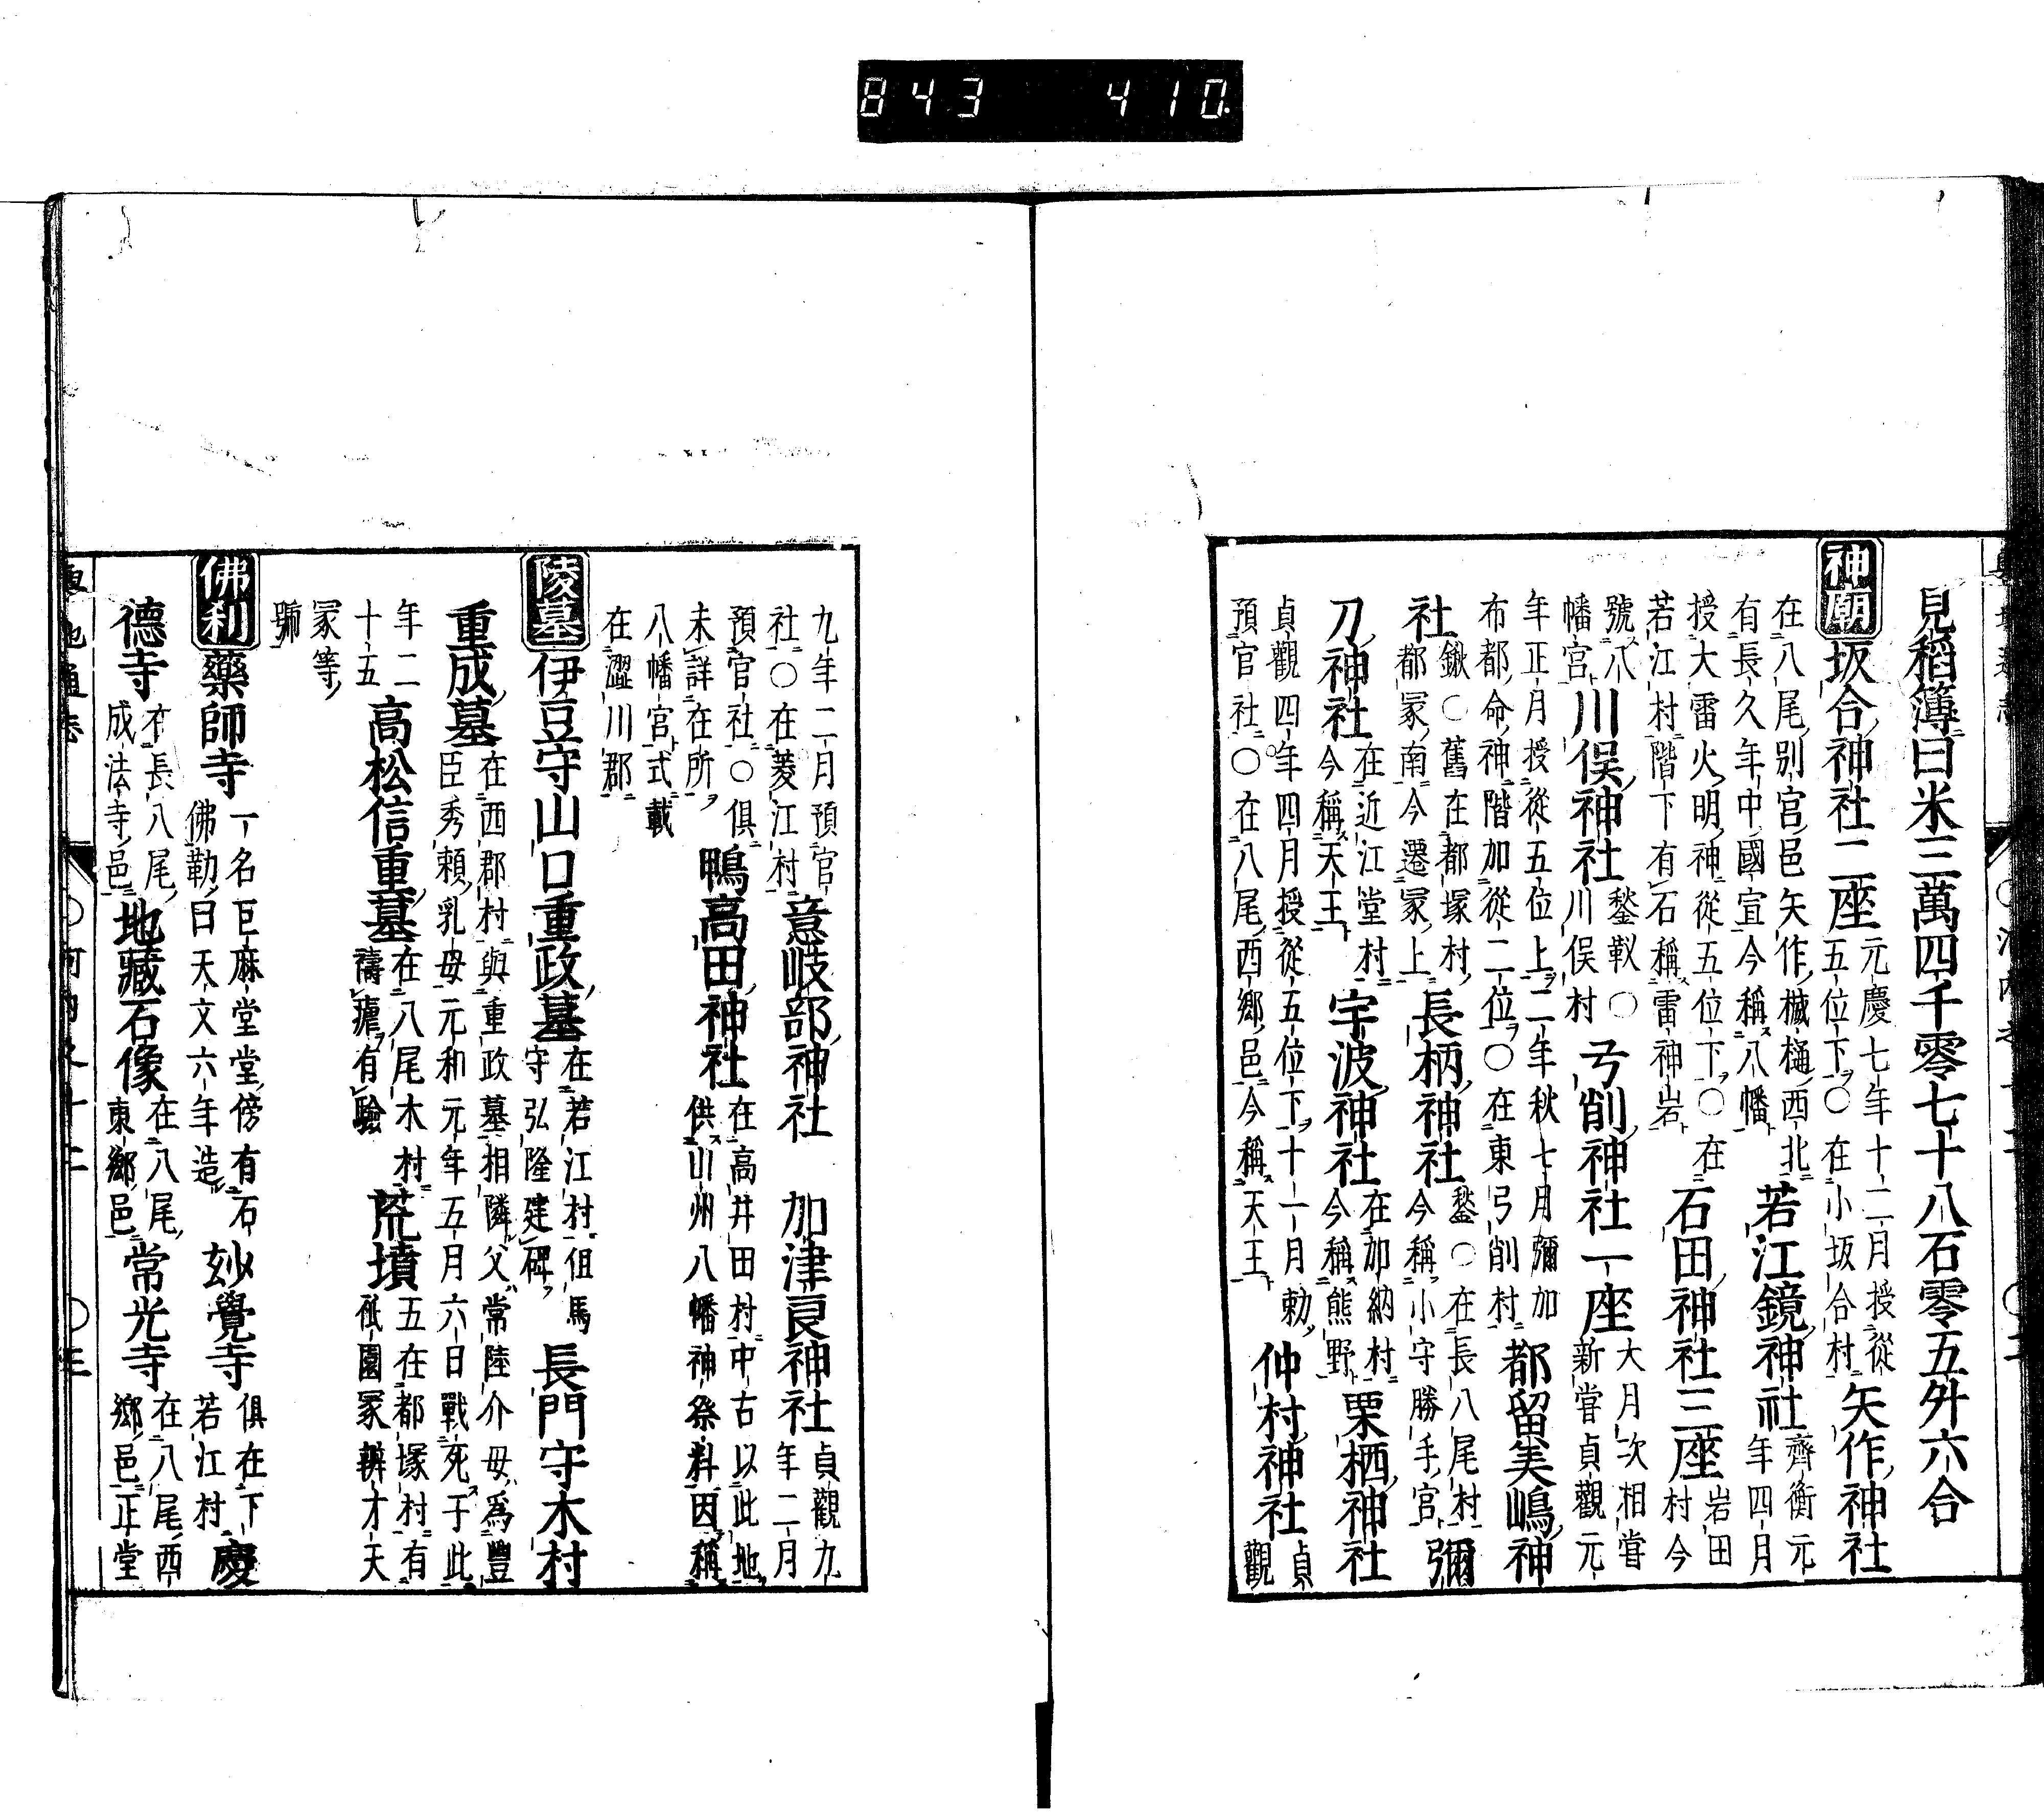 843 410
見稻簿曰米三萬四千零七十八石零五舛六合
神廟 坂合神社二座 元慶七年十二月授從
五位下○在小坂合村 矢作神社
在八尾別宮邑矢作楲樋西北
有長久年中國宣今稱八幡 若江鏡神社 齊衡元
年四月
授大雷火明神從五位下○在
若江村階下有石稱雷神岩 石田神社三座 岩田
村今
號八
幡宮 川俣神社 鍫靱○
川俣村 弓削神社一座 大月次相嘗
新嘗貞觀元
年正月授從五位上二年秋七月彌加
布都命神階加從二位○在東弓削村 都留美嶋神
社 鍬○舊在都塚村
都冢南今遷冢上 長柄神社 鍫○在長八尾村
今稱小守勝手宮 彌
刀神社 在近江堂村
今稱天王 宇波神社 在加納村
今稱熊野 栗栖神社
貞觀四年四月授從五位下十一月勅
預官社○在八尾西鄉邑今稱天王 仲村神社 貞
觀
九年二月預官
社○在菱江村 意岐部神社 加津良神社 貞觀九
年二月
預官社○俱
未詳在所 鴨高田神社 在高井田村中古以此地
供山州八幡神祭料因稱
八幡宮式載
在澀川郡
陵墓 伊豆守山口重政墓 在若江村但馬
守弘隆建碑 長門守木村
重成墓 在西郡村與重政墓相隣父常陸介母爲豐
臣秀頼乳母元和元年五月六日戰死于此
年二
十五 高松信重墓 在八尾木村
禱瘧有驗 荒墳 五在都塚村有
祇園冢辨才天
冢等
號
佛刹 藥師寺 一名巨麻堂堂傍有石
佛勒曰天文六年造 玅覺寺 俱在下
若江村 慶
德寺 在長八尾
成法寺邑 地藏石像 在八尾
東鄉邑 常光寺 在八尾西
鄉邑正堂